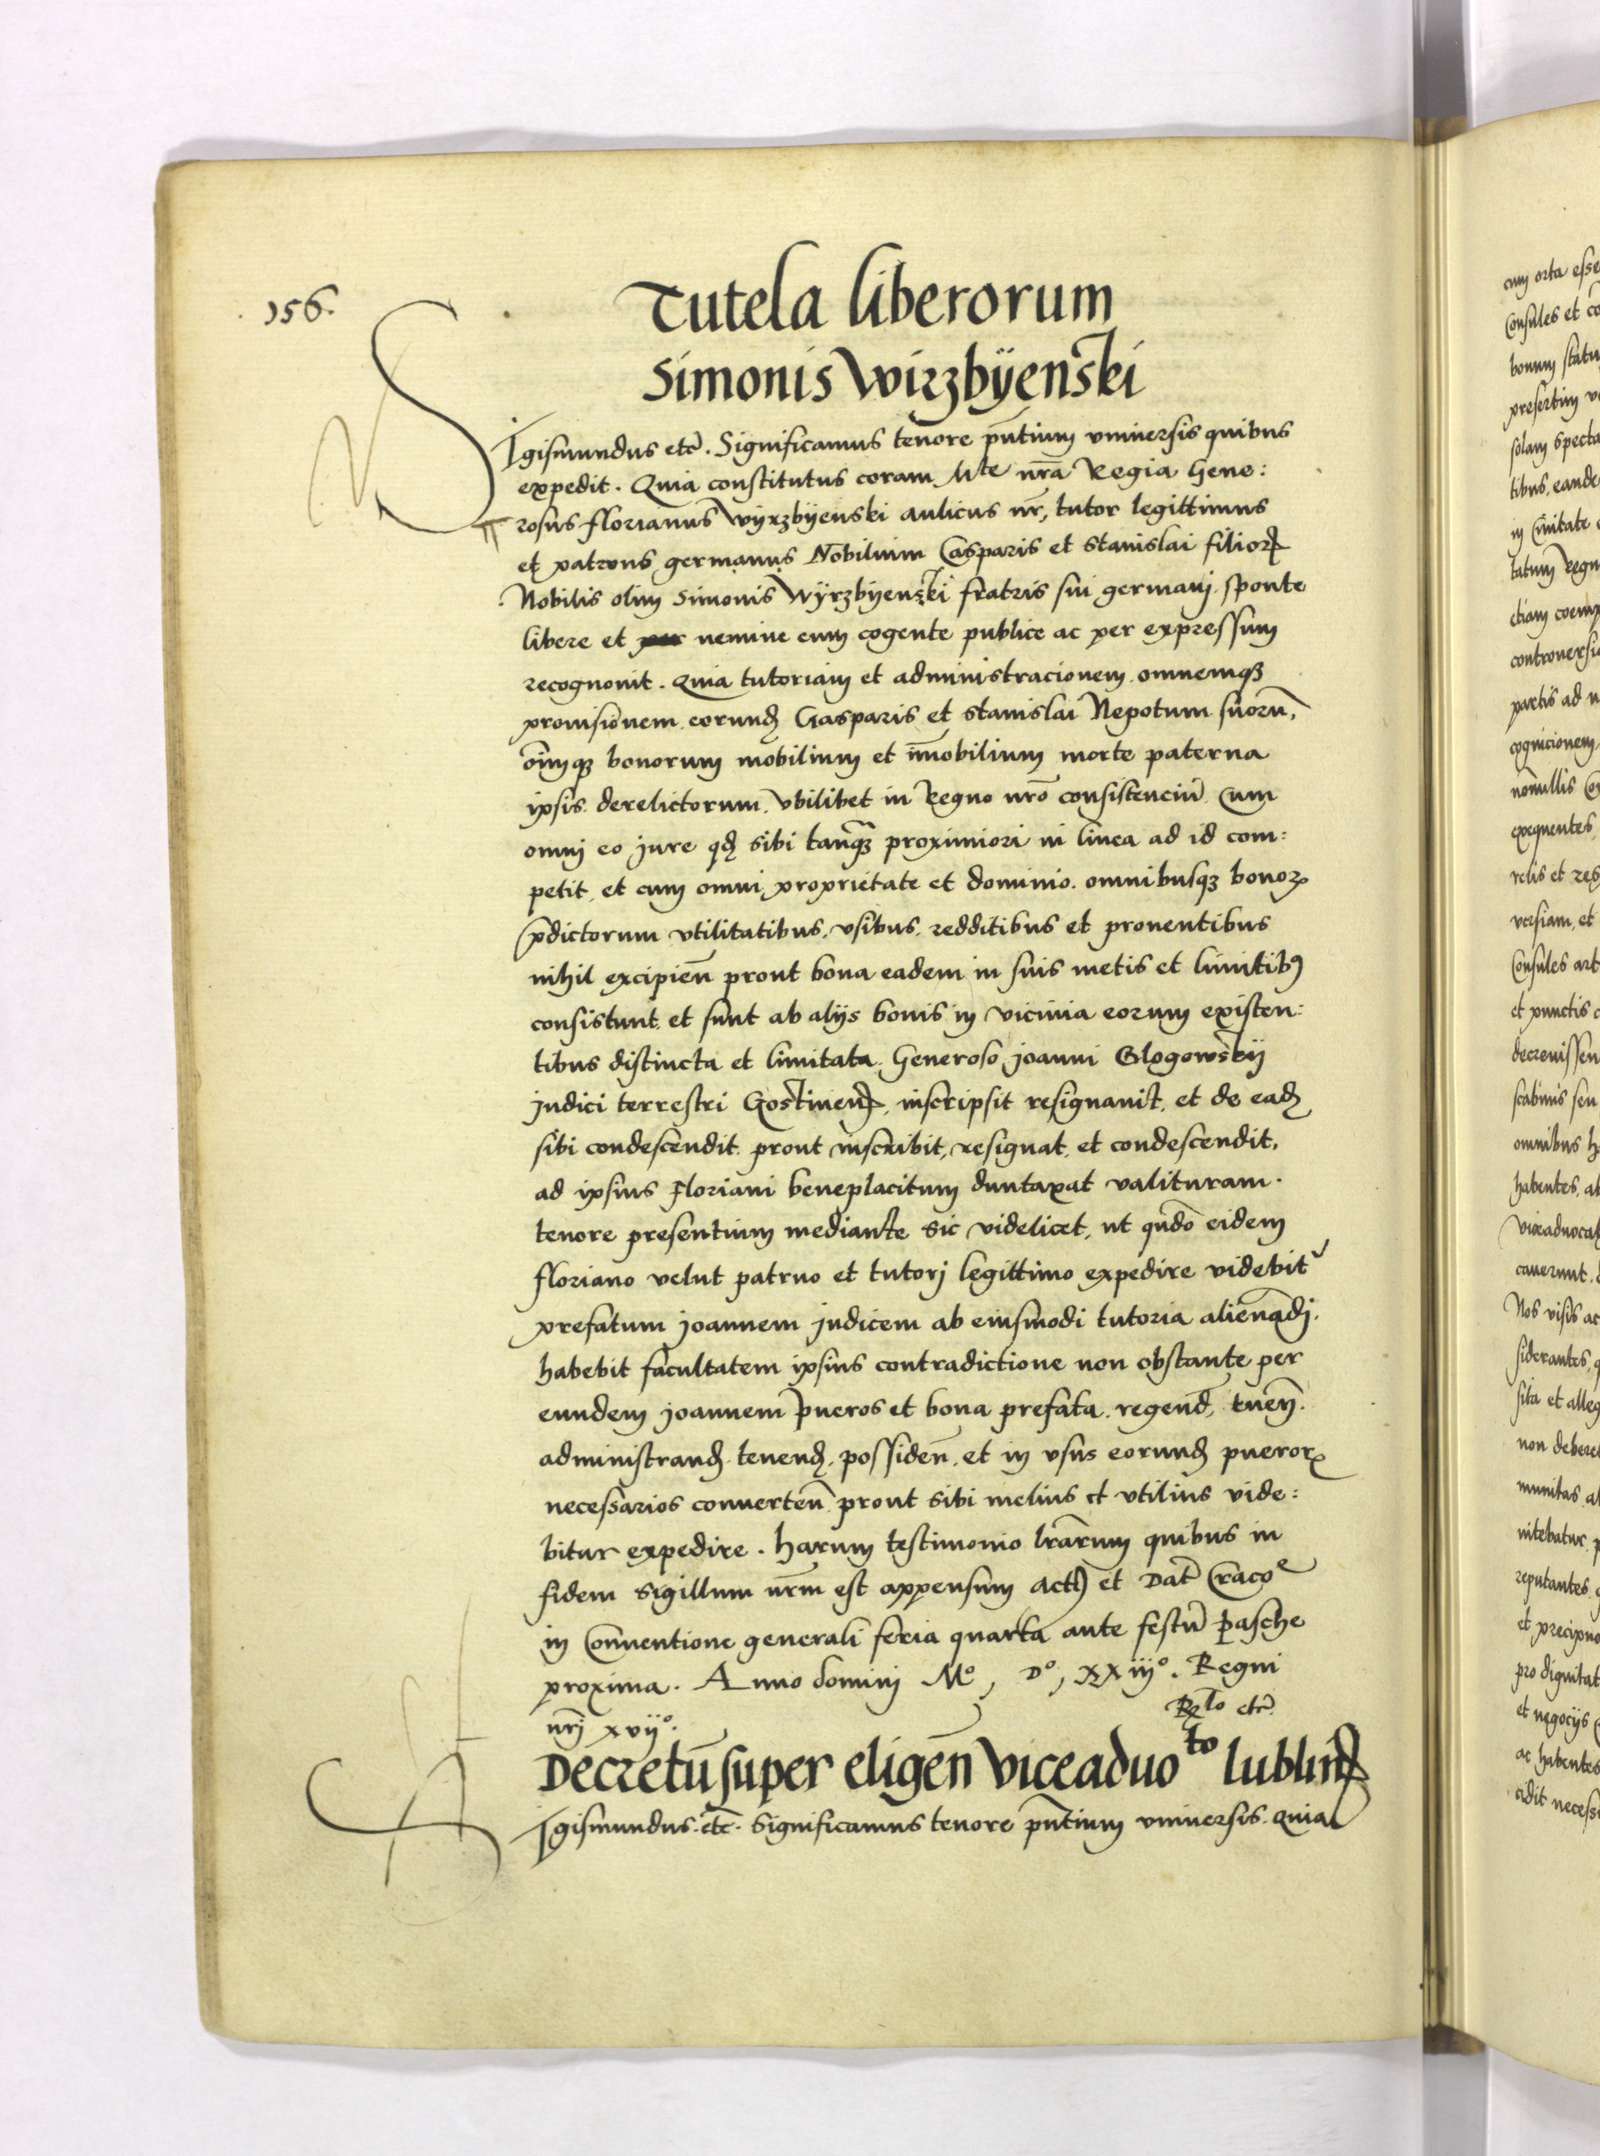 156.
Tutela liberorum
Simonis Wirzbÿenski
SIgismundus etc̄. Significamus tenore pñtium vniuersis quibus
expedit. Quia constitutus coram Mte nr̄a Regia Gene:
rosus florianus Wÿrzbÿenski aulicus nr̄, tutor legittimus
et patruus germanus Nobilium Casparis et Stanislai filiorꝝ
Nobilis olim Simonis Wÿrzbÿenski fratris sui germani sponte
libere et nemine eum cogente publice ac per expressum
recognouit. Quia tutoriam et administracionem omnemqꝫ
prouisionem eorundꝫ Gasparis et Stanislai Nepotum suorū,
oīmqꝫ bonorum mobilium et im̄obilium morte paterna
ipsis derelictorum vbilibet in Regno nr̄o consistenciū Cum
omni eo jure qdꝫ sibi tanqꝫ proximiori in linea ad id com:
petit, et cum omni proprietate et dominio omnibusqꝫ bonorꝝ
p̄dictorum vtilitatibus, vsibus, redditibus et prouentibus
nihil excipień prout bona eadem in suis metis et limitibꝰ
consistunt et sunt ab alijs bonis in vicinia eorum existen:
tibus distincta et limitata. Generoso joanni Glogowskij
judici terrestri Gostineñ, inscripsit resignauit, et de eadꝫ
sibi condescendit prout inscribit, resignat, et condescendit,
ad ipsius floriani beneplacitum duntaxat valituram.
tenore presentium mediante sic videlicet, ut qn̄do eidem
floriano velut patruo et tutori legittimo expedire videbit᷑
prefatum joannem judicem ab eiusmodi tutoria alienādi.
habebit facultatem ipsius contradictione non obstante per
eundem joannem pueros et bona prefata regend̄, tueñ.
administrandꝫ tenendꝫ, possideñ, et in vsus eorundꝫ puerorꝝ
necessarios conuerteñ prout sibi melius et vtilius vide:
bitur expedire. Harum testimonio lr̄arum quibus in
fidem Sigillum nr̄m est appensum Actꝫ et Dat̄ Cracoᵉ
in Conuentione generali feria quarta ante festū Pasche
proxima. Anno domini Mº, Dº, XXiijº. Regni
nr̄j xvijº.
Rlo etc̄
Decretū super eligeñ viceaduoto lublineñ
SIgismundus. etc̄. Significamus tenore pñtium vniuersis. Quia